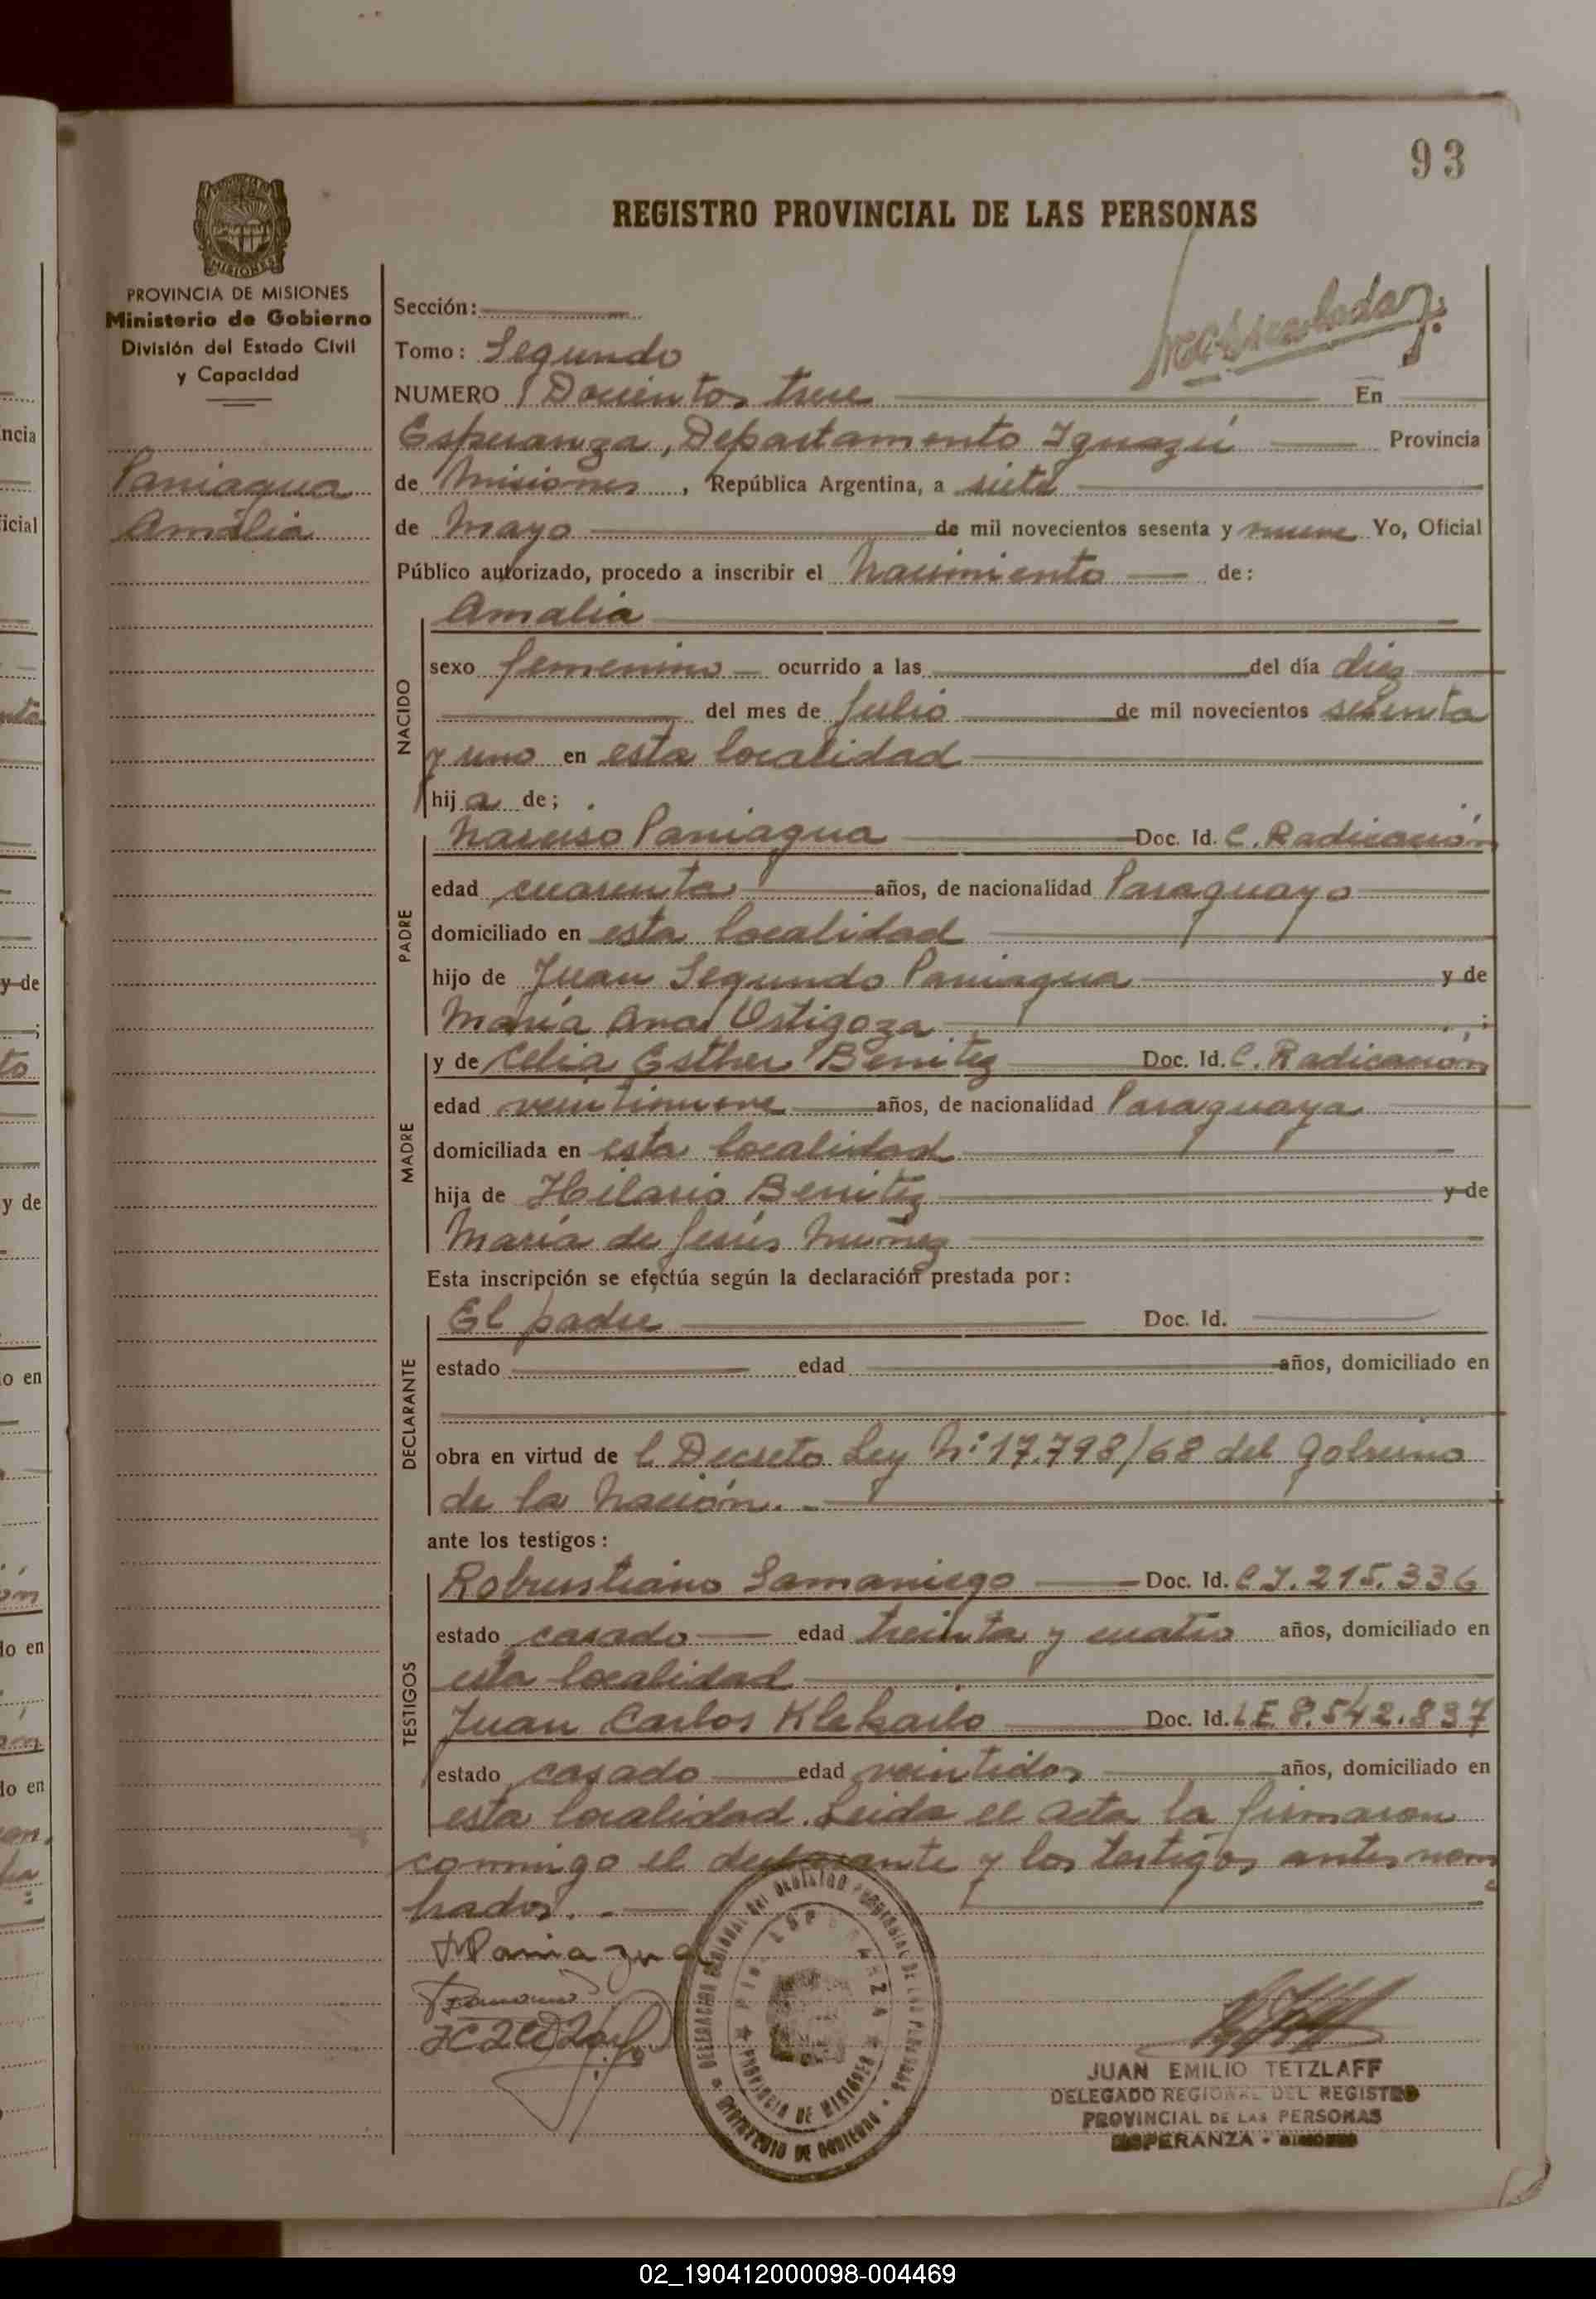 93
REGISTRO PROVINCIAL DE LAS PERSONAS
MISIONES
PROVINCIA DE MISIONES
Ministerio de Gobierno
División del Estado Civil
y Capacidad
Paniagua
Amalia
Sección:
Tomo: Segundo
NUMERO Docientos trece En
Esperanza, Departamento Iguazú Provincia
de Misiones, República Argentina, a siete
de Mayo de mil novecientos sesenta y nueve Yo, Oficial
Público autorizado, procedo a inscribir el Nacimiento de:
NACIDO
Amalia
sexo femenino ocurrido a las del día diez
del mes de Julio de mil novecientos sesenta
y uno en esta localidad
hija de;
PADRE
Narciso Paniagua Doc. Id. C. Radicación
edad cuarenta años, de nacionalidad Paraguayo
domiciliado en esta localidad
hijo de Juan Segundo Paniagua y de
María Ana Ortigoza ;
MADRE
y de Celia Esther Benitez Doc. Id. C. Radicación
edad veintinueve años, de nacionalidad Paraguaya
domiciliada en esta localidad
hija de Hilario Benitez y de
María de Jesús Nuñez
Esta inscripción se efectúa según la declaración prestada por:
DECLARANTE
El padre Doc. Id.
estado edad años, domiciliado en
obra en virtud de l Decreto Ley N° 17.798/68 del Gobierno
de la Nación.
ante los testigos:
TESTIGOS
Robustiano Samaniego Doc. Id. C.I. 215.336
estado casado edad treinta y cuatro años, domiciliado en
esta localidad
Juan Carlos Klekailo Doc. Id. L.E. 8.542.837
estado casado edad veintidos años, domiciliado en
esta localidad. Leida el acta la firmaron
conmigo el declarante y los testigos antes nom
brados.
Paniagua
JUAN EMILIO TETZLAFF
DELEGADO REGIONAL DEL REGISTRO
PROVINCIAL DE LAS PERSONAS
ESPERANZA - MISIONES
PROVINCIA DE MISIONES
02_190412000098-004469